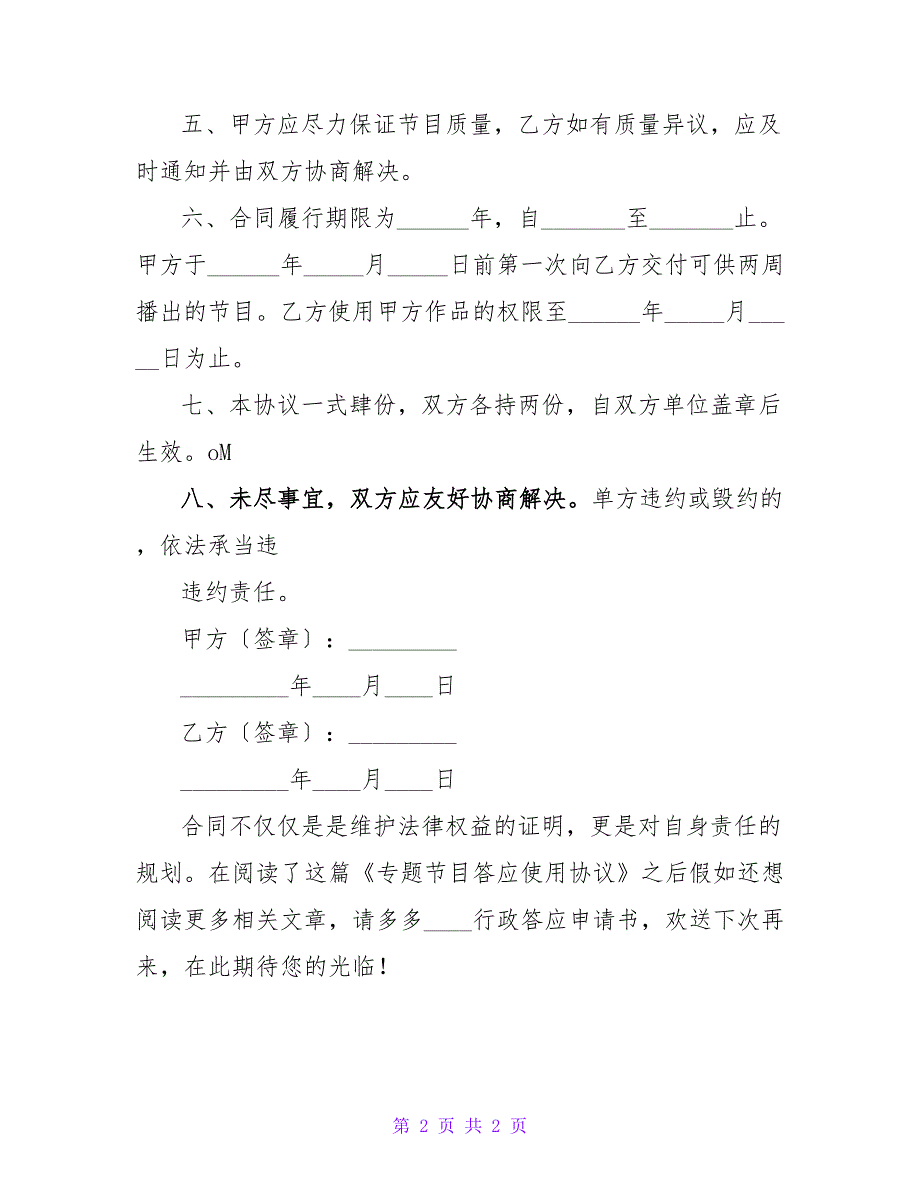 五、甲方应尽力保证节目质量，乙方如有质量异议，应及
时通知并由双方协商解决。
六、合同履行期限为______年，自_______至_______止。
甲方于______年_____月_____日前第一次向乙方交付可供两周
播出的节目。乙方使用甲方作品的权限至______年_____月___
__日为止。
七、本协议一式肆份，双方各持两份，自双方单位盖章后
生效。oM
八、未尽事宜，双方应友好协商解决。单方违约或毁约的
，依法承当违
违约责任。
甲方〔签章〕：_________
_________年____月____日
乙方〔签章〕：_________
_________年____月____日
合同不仅仅是是维护法律权益的证明，更是对自身责任的
规划。在阅读了这篇《专题节目答应使用协议》之后假如还想
阅读更多相关文章，请多多____行政答应申请书，欢送下次再
来，在此期待您的光临！
第 2 页 共 2 页